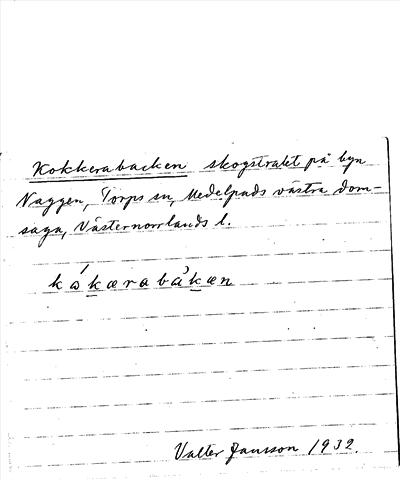 Kokkerabacken skogstrakt på byn
Naggen, Torps sn, Medelpads västra dom-
saga, Västernorrlands l.
kɷ́kærabàkæn
Valter Jansson 1932.